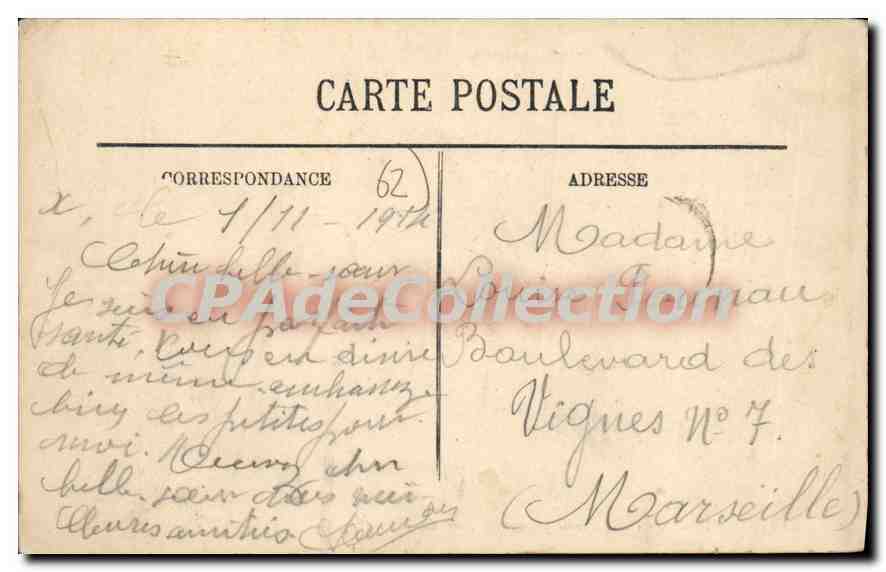 CARTE POSTALE
CORRESPONDANCE
ADRESSE
62
CPAdeCollection.com
x, le 1/11 - 19
Chère belle-sœur
Je suis en parfaite
santé, vous en désire
de même. embrassez
bien les petites pour
moi. Recevez chère
belle-sœur mes meil-
leures amitiés
Madame
Louise
Boulevard des
Vignes N° 7.
(Marseille)